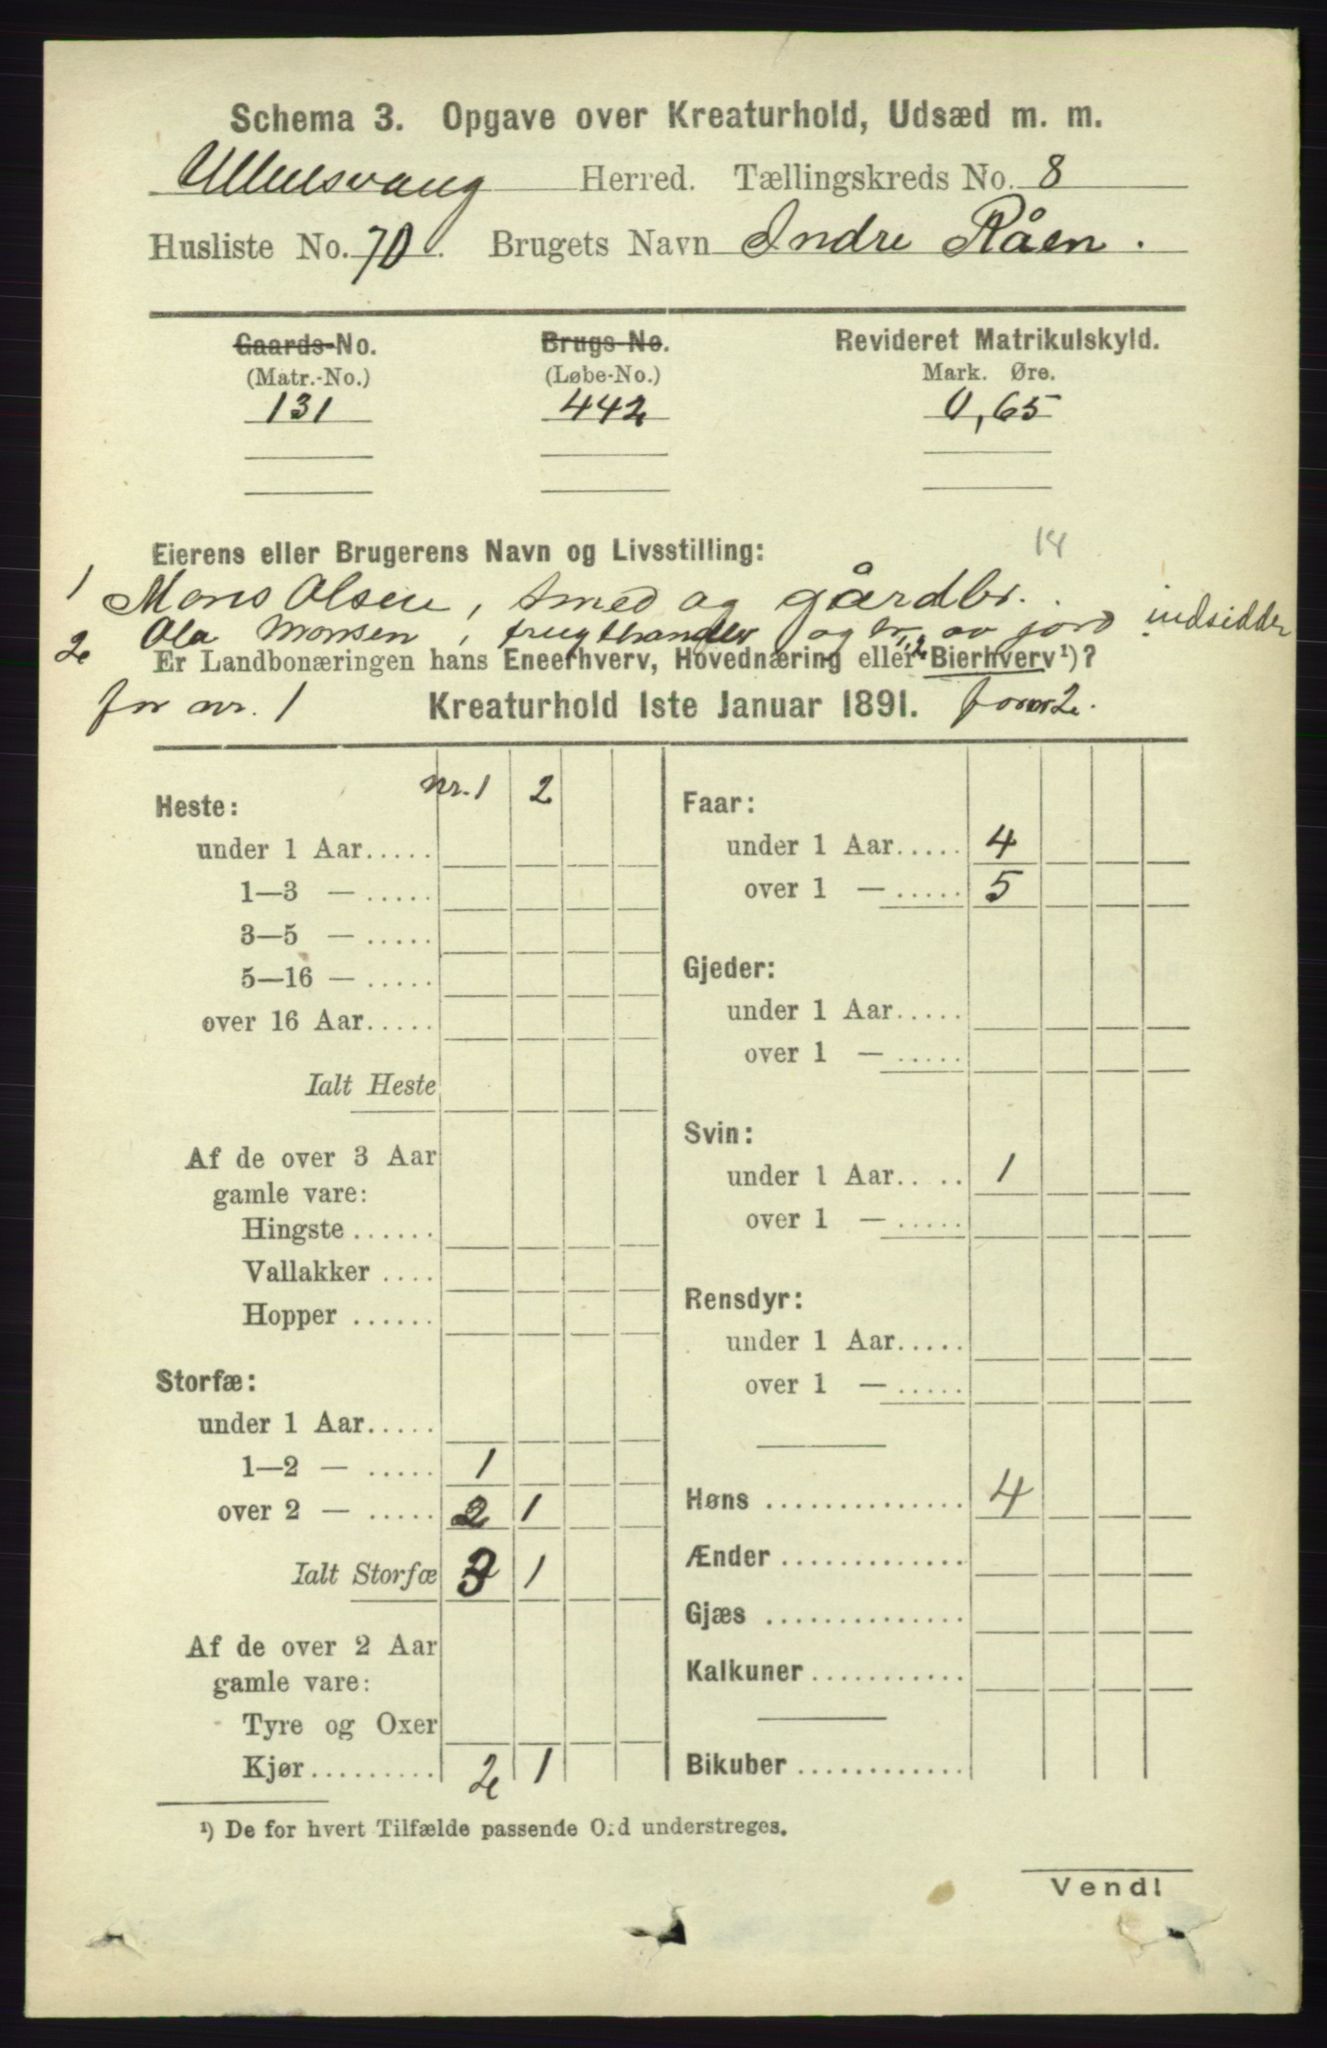 Schema 3. Opgave over Kreaturhold, Udsæd m. m.
Ullensvang Herred. Tællingskreds No. 8
Husliste No. 70. Brugets Navn Indre Råen.
Gaards-No. Brugs-No. Revideret Matrikulskyld.
(Matr.-No.) (Løbe-No.) Mark. Øre.
131 442 0,65
14
Eierens eller Brugerens Navn og Livsstilling:
1 Mons Olsen, smed og gårdbr.
2 Ola Monsen, frugthandler og br. av jord indsidder
Er Landbonæringen hans Eneerhverv, Hovednæring eller 1,2 Bierhverv¹)?
for nr. 1 Kreaturhold 1ste Januar 1891. for nr 2.
nr. 1 2
Heste:
under 1 Aar.....
1—3 — .....
3—5 — .....
5—16 — .....
over 16 Aar.....
Ialt Heste
Af de over 3 Aar
gamle vare:
Hingste ......
Vallakker ....
Hopper ......
Storfæ:
under 1 Aar.....
1—2 — ..... 1
over 2 — ..... 2 1
Ialt Storfæ 3 1
Af de over 2 Aar
gamle vare:
Tyre og Oxer
Kjør......... 2 1
Faar:
under 1 Aar..... 4
over 1 — ..... 5
Gjeder:
under 1 Aar.....
over 1 — .....
Svin:
under 1 Aar..... 1
over 1 — .....
Rensdyr:
under 1 Aar.....
over 1 — .....
Høns .............. 4
Ænder .............
Gjæs ..............
Kalkuner...........
Bikuber ............
¹) De for hvert Tilfælde passende Ord understreges.
Vend!